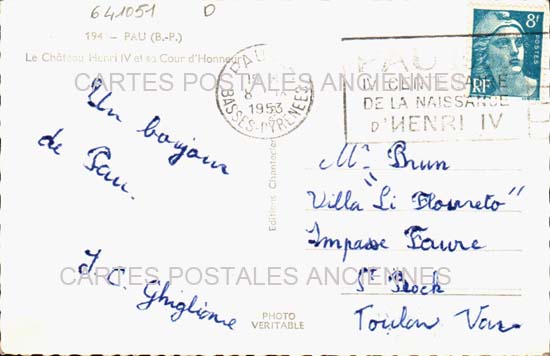 641051 D
194 - PAU (B.-P.)
Le Château Henri IV et sa Cour d'Honneur
CARTES POSTALES ANCIENNES
Un bonjour
de Pau.
J. C. Ghiglione
CARTES POSTALES ANCIENNES
Editions Chantecler
PHOTO
VERITABLE
PAU
8
1953
BASSES-PYRENEES
PAU
IVe CENTENAIRE
DE LA NAISSANCE
D'HENRI IV
8F
POSTES
RF
Mr Brun
"Villa Li Floureto"
Impasse Faure
St Roch
Toulon Var